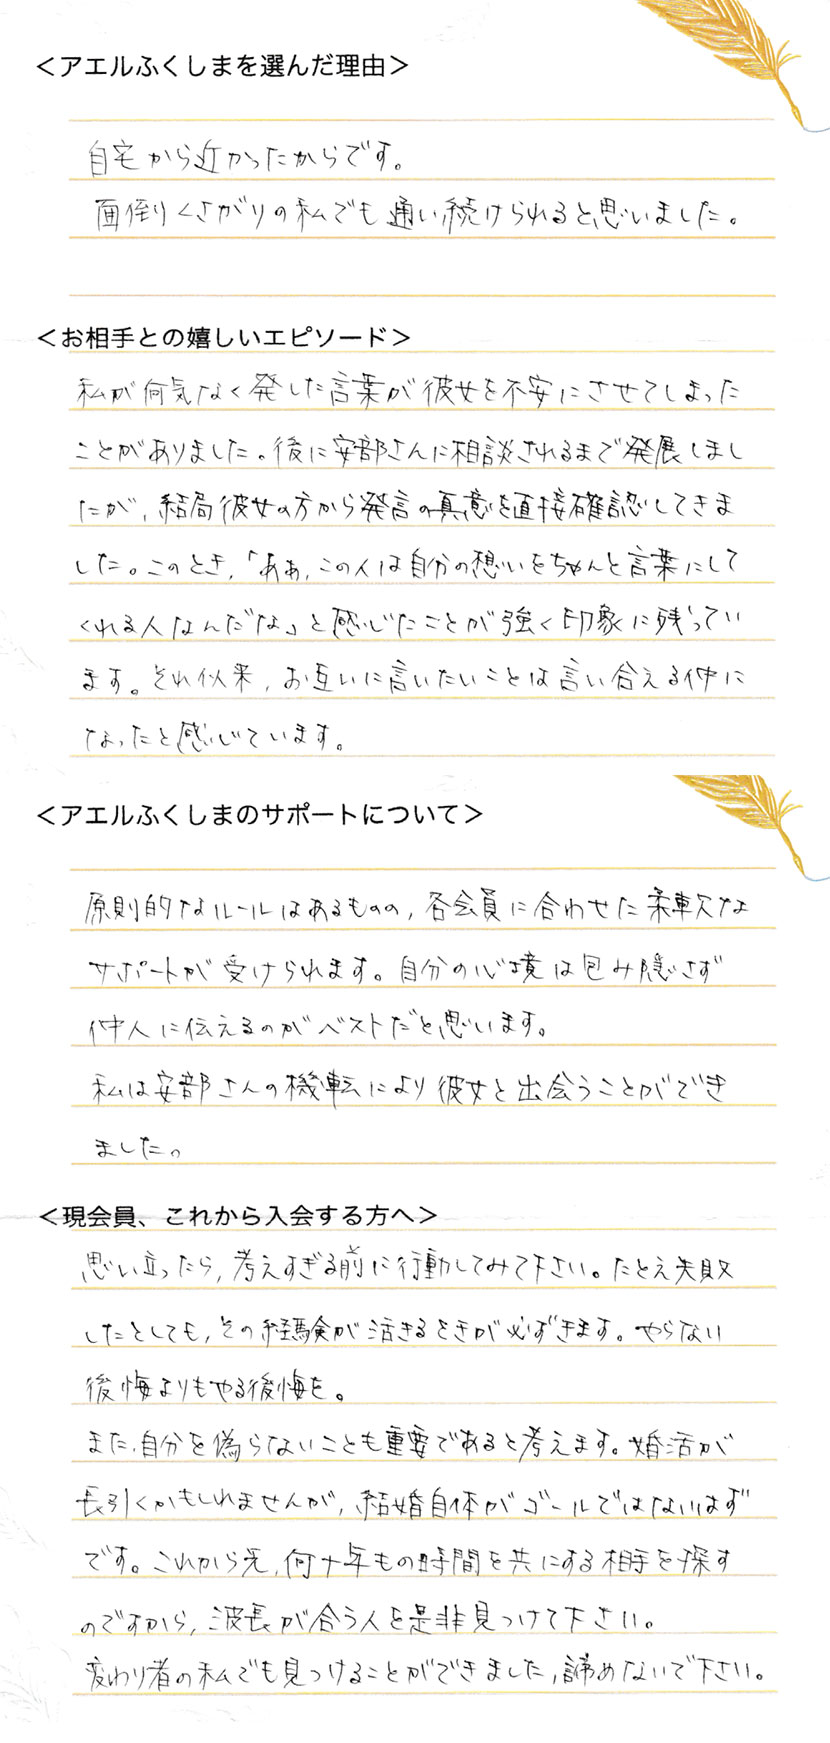 ＜アエルふくしまを選んだ理由＞
自宅から近かったからです。
面倒くさがりの私でも通い続けられると思いました。
＜お相手との嬉しいエピソード＞
私が何気なく発した言葉が彼女を不安にさせてしまった
ことがありました。後に安部さんに相談されるまで発展しまし
たが，結局彼女の方から発言の真意を直接確認してきま
した。このとき，「ああ，この人は自分の想いをちゃんと言葉にして
くれる人なんだな」と感じたことが強く印象に残ってい
ます。それ以来，お互いに言いたいことは言い合える仲に
なったと感じています。
＜アエルふくしまのサポートについて＞
原則的なルールはあるものの，各会員に合わせた柔軟な
サポートが受けられます。自分の心境は包み隠さず
仲人に伝えるのがベストだと思います。
私は安部さんの機転により彼女と出会うことができ
ました。
＜現会員、これから入会する方へ＞
思い立ったら，考えすぎる前に行動してみて下さい。たとえ失敗
したとしても，その経験が活きるときが必ずきます。やらない
後悔よりもやる後悔を。
また，自分を偽らないことも重要であると考えます。婚活が
長引くかもしれませんが，結婚自体がゴールではないはず
です。これから先，何十年もの時間を共にする相手を探す
のですから，波長が合う人を是非見つけて下さい。
変わり者の私でも見つけることができました，諦めないで下さい。